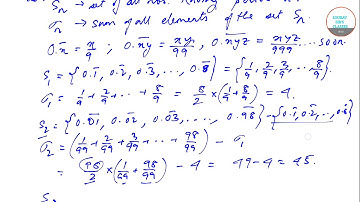 Sₙ → set of all nos. having period n
σₙ → sum of all elements of the set Sₙ.
0.x̄ = x/9 , 0.x̄ȳ = xy/99 , 0.x̄ȳz̄ = xyz/999 .... soon.
S₁ = {0.1̄, 0.2̄, 0.3̄, ..., 0.8̄} = {1/9, 2/9, 3/9, ... 8/9}
σ₁ = 1/9 + 2/9 + ... + 8/9 = 8/2 × (1/9 + 8/9) = 4.
S₂ = {0.0̄1̄, 0.0̄2̄, 0.0̄3̄, ...., 0.9̄8̄} - {0.1̄, 0.2̄, .., 0.8̄}
σ₂ = (1/99 + 2/99 + 3/99 + ... + 98/99) - σ₁
= 98/2 × (1/99 + 98/99) - 4 = 49 - 4 = 45.